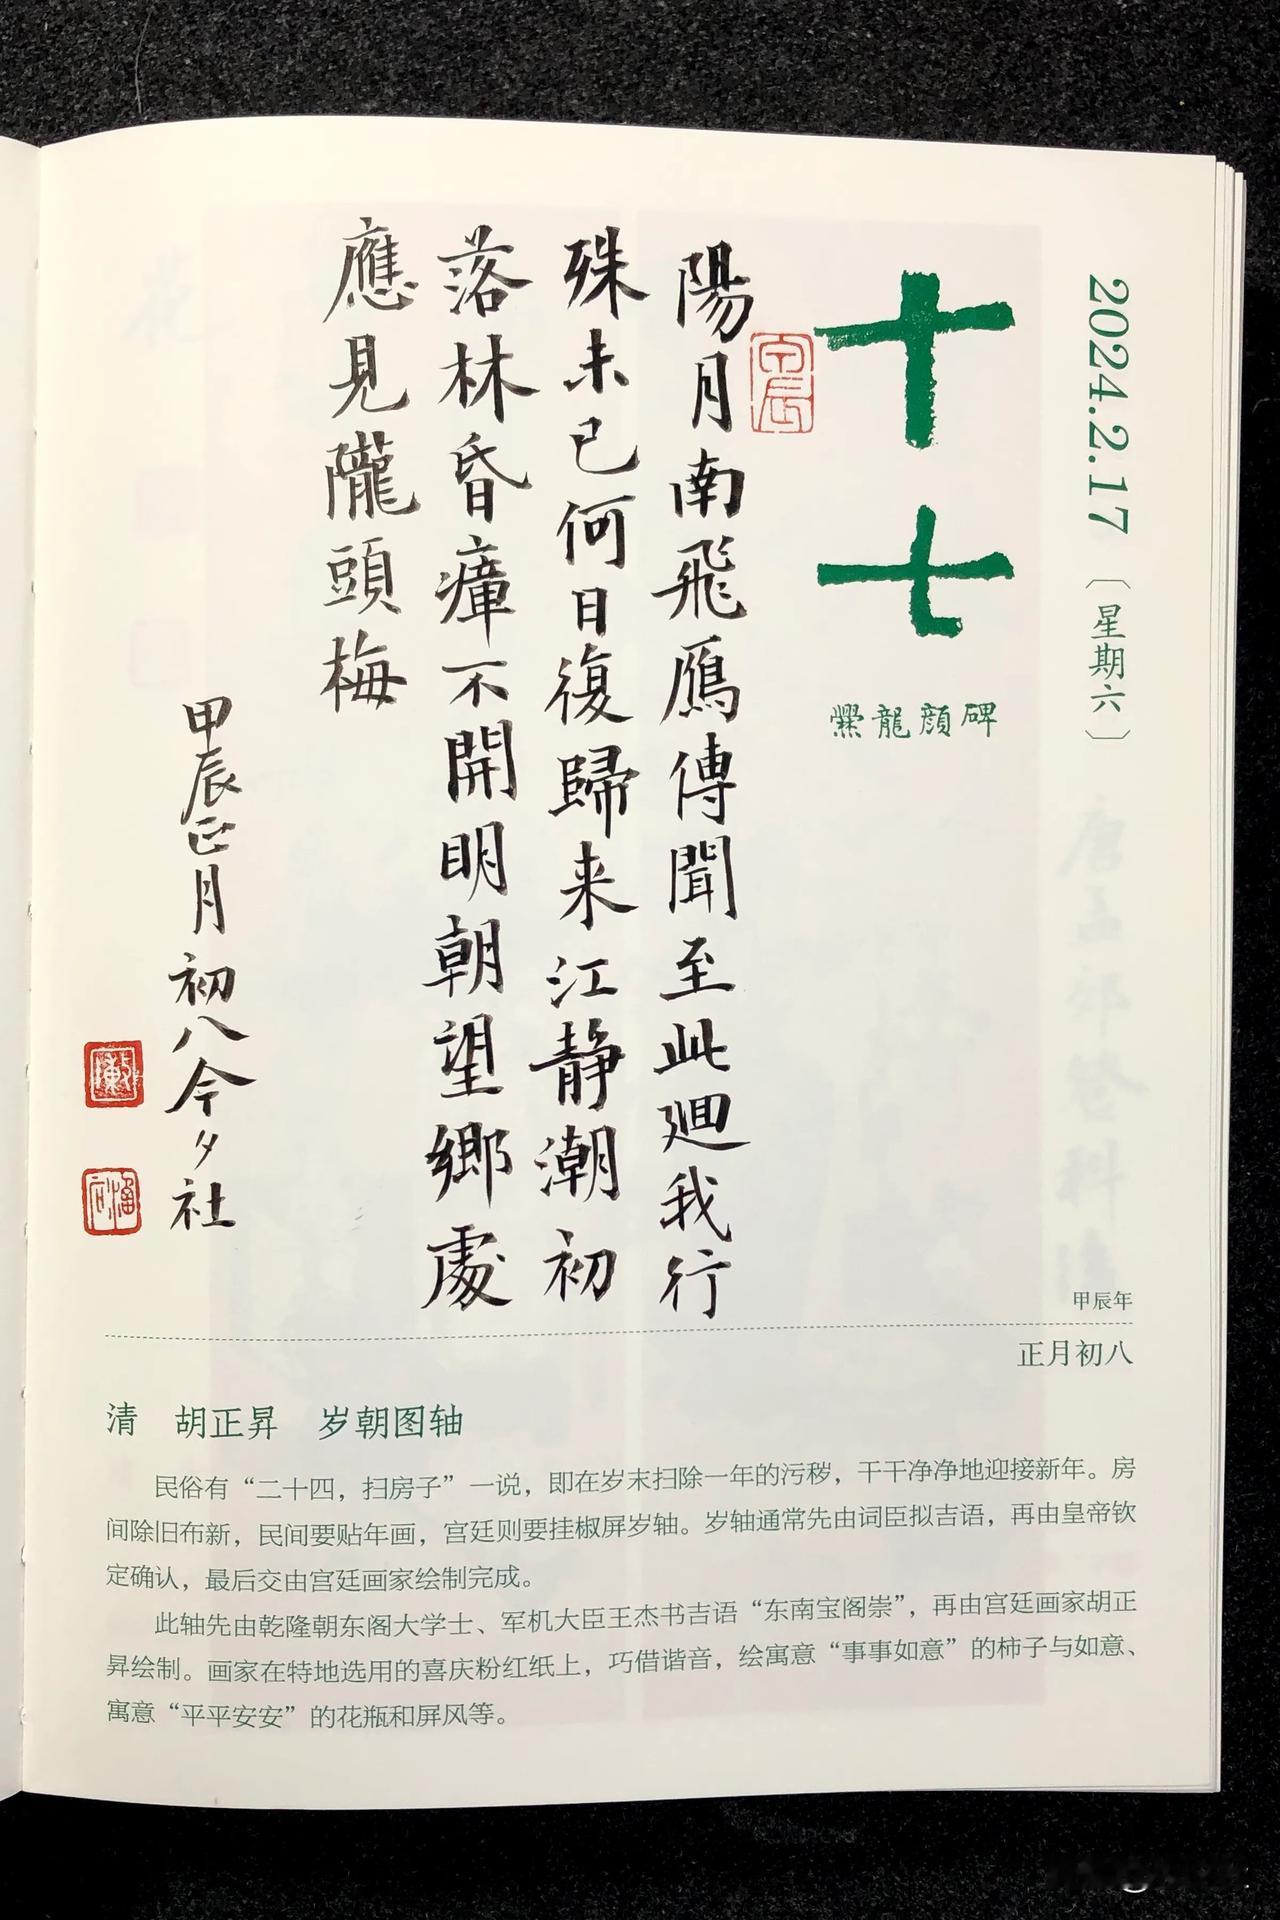 2024.2.17〔星期六〕
十七
爨龍顔碑
陽月南飛鴈傳聞至此迴我行
殊未已何日復歸来江静潮初
落林昏瘴不開明朝望鄉處
應見隴頭梅
甲辰正月初八今夕社
甲辰年
正月初八
清 胡正昇 岁朝图轴
民俗有“二十四，扫房子”一说，即在岁末扫除一年的污秽，干干净净地迎接新年。房
间除旧布新，民间要贴年画，宫廷则要挂椒屏岁轴。岁轴通常先由词臣拟吉语，再由皇帝钦
定确认，最后交由宫廷画家绘制完成。
此轴先由乾隆朝东阁大学士、军机大臣王杰书吉语“东南宝阁崇”，再由宫廷画家胡正
昇绘制。画家在特地选用的喜庆粉红纸上，巧借谐音，绘寓意“事事如意”的柿子与如意、
寓意“平平安安”的花瓶和屏风等。